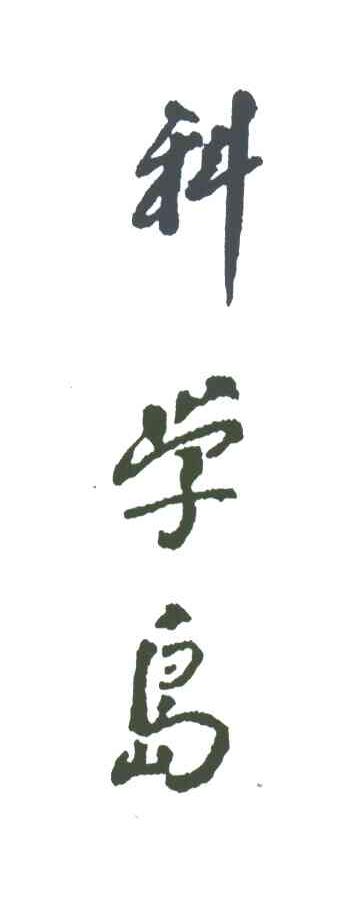 科学岛